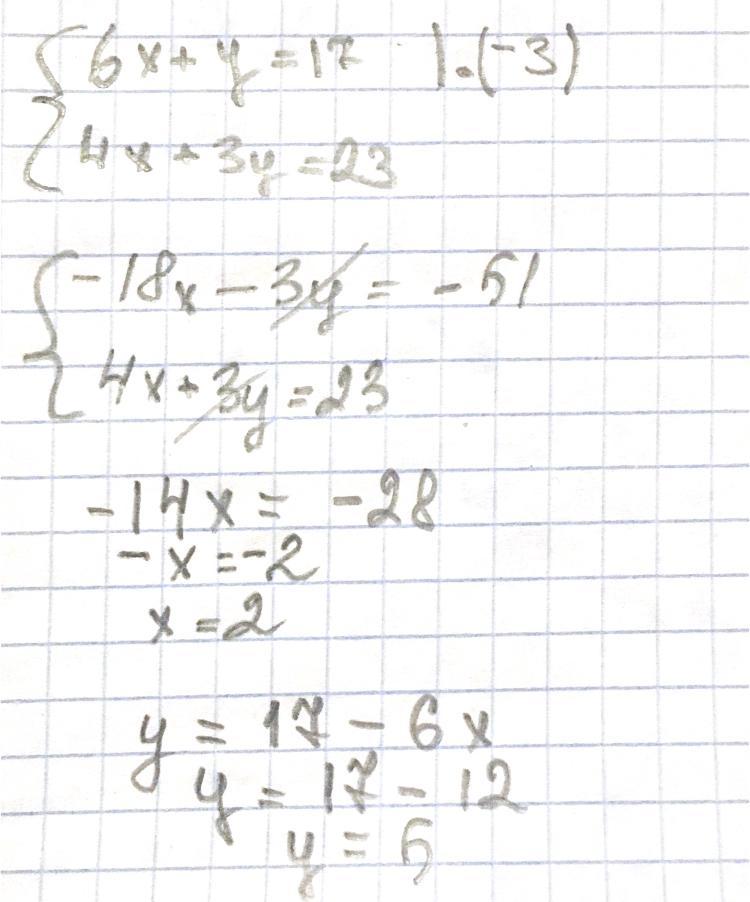 6x + y = 17 | · (-3)
4x + 3y = 23
-18x - 3y = -51
4x + 3y = 23
-14x = -28
-x = -2
x = 2
y = 17 - 6x
y = 17 - 12
y = 5